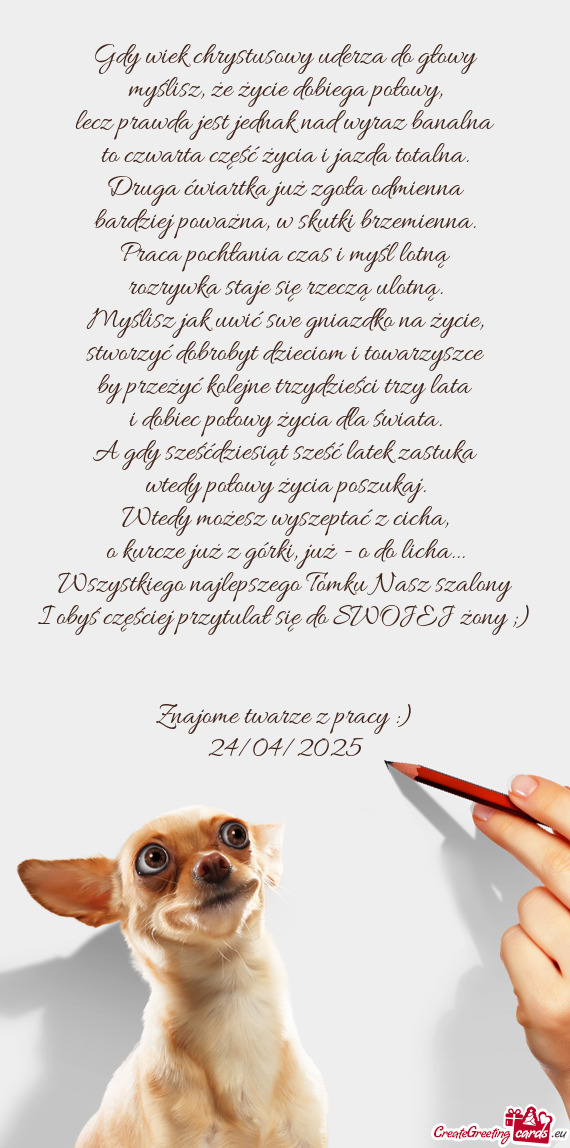 Gdy wiek chrystusowy uderza do głowy
myślisz, że życie dobiega połowy,
lecz prawda jest jednak nad wyraz banalna
to czwarta część życia i jazda totalna.
Druga ćwiartka już zgoła odmienna
bardziej poważna, w skutki brzemienna.
Praca pochłania czas i myśl lotną
rozrywka staje się rzeczą ulotną.
Myślisz jak uwić swe gniazdko na życie,
stworzyć dobrobyt dzieciom i towarzyszce
by przeżyć kolejne trzydzieści trzy lata
i dobiec połowy życia dla świata.
A gdy sześćdziesiąt sześć latek zastuka
wtedy połowy życia poszukaj.
Wtedy możesz wyszeptać z cicha,
o kurcze już z górki, już - o do licha...
Wszystkiego najlepszego Tomku Nasz szalony
I obyś częściej przytulał się do SWOJEJ żony ;)
Znajome twarze z pracy :)
24/04/2025
CreateGreeting cards .eu